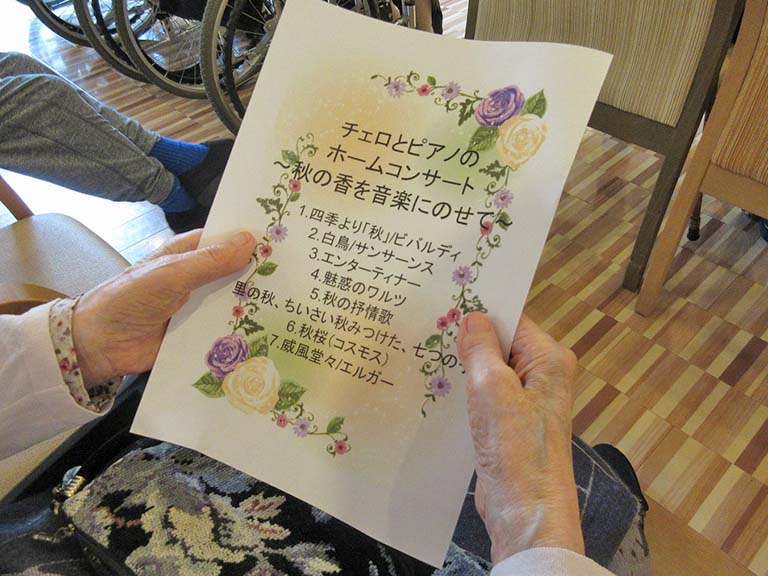 チェロとピアノの
ホームコンサート
～秋の香を音楽にのせて～
1.四季より「秋」/ビバルディ
2.白鳥/サンサーンス
3.エンターティナー
4.魅惑のワルツ
5.秋の抒情歌
里の秋、ちいさい秋みつけた、七つの
6.秋桜（コスモス）
7.威風堂々/エルガー